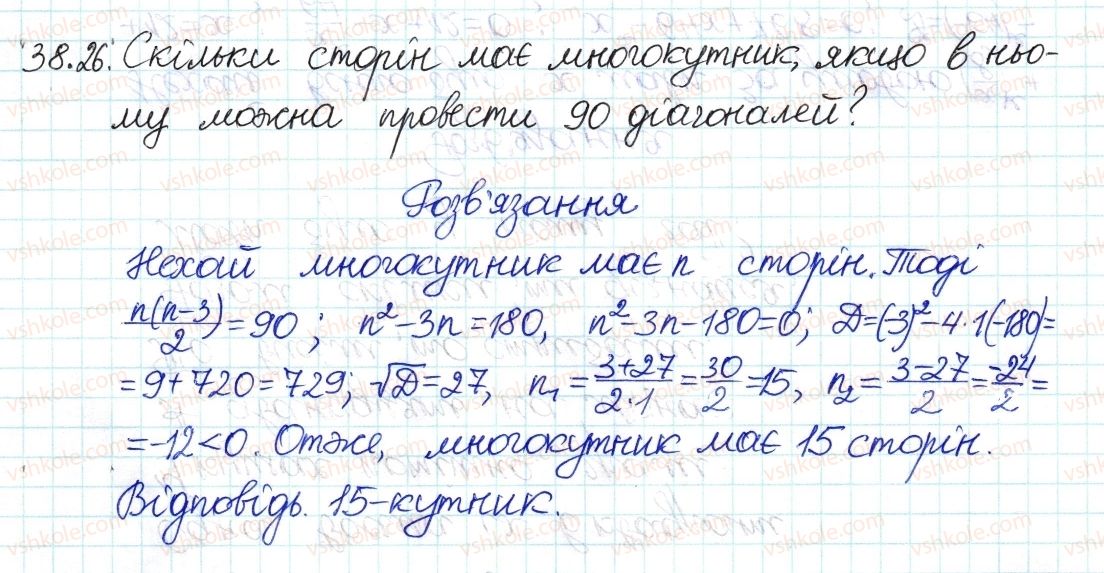 38.26. Скільки сторін має многокутник, якщо в ньо-
му можна провести 90 діагоналей?
Розв'язання
Нехай многокутник має n сторін. Тоді
n(n-3)/2 = 90; n²-3n=180, n²-3n-180=0; Д=(-3)²-4·1(-180)=
=9+720=729; √Д=27, n₁=(3+27)/(2·1)=30/2=15, n₂=(3-27)/2=-24/2=
=-12<0. Отже, многокутник має 15 сторін.
Відповідь. 15-кутник.